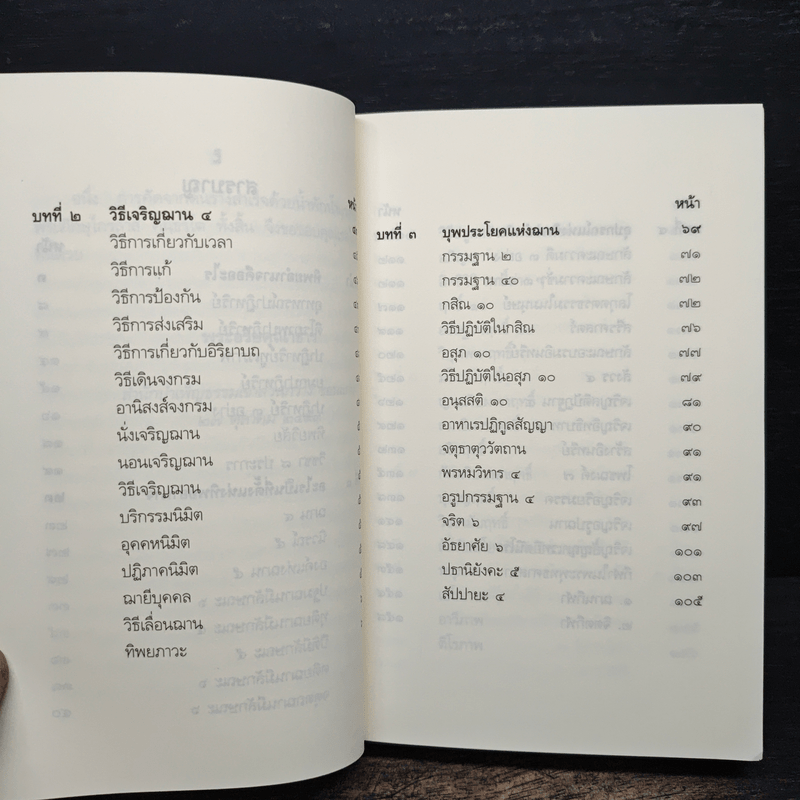 บทที่ ๒ วิธีเจริญฌาน ๔
วิธีการเกี่ยวกับเวลา
วิธีการแก้
วิธีการป้องกัน
วิธีการส่งเสริม
วิธีการเกี่ยวกับอิริยาบถ
วิธีเดินจงกรม
อานิสงส์จงกรม
นั่งเจริญฌาน
นอนเจริญฌาน
วิธีเจริญฌาน
บริกรรมนิมิต
อุคคหนิมิต
ปฏิภาคนิมิต
ฌายีบุคคล
วิธีเลื่อนฌาน
ทิพยภาวะ
หน้า
บทที่ ๓ บุพประโยคแห่งฌาน ๖๙
กรรมฐาน ๒ ๗๑
กรรมฐาน ๔๐ ๗๒
กสิณ ๑๐ ๗๒
วิธีปฏิบัติในกสิณ ๗๖
อสุภ ๑๐ ๗๗
วิธีปฏิบัติในอสุภ ๑๐ ๗๙
อนุสสติ ๑๐ ๘๑
อาหาเรปฏิกูลสัญญา ๙๐
จตุธาตุววัตถาน ๙๑
พรหมวิหาร ๔ ๙๑
อรูปกรรมฐาน ๔ ๙๓
จริต ๖ ๙๗
อัธยาศัย ๖ ๑๐๑
ปธานิยังคะ ๕ ๑๐๓
สัปปายะ ๔ ๑๐๕